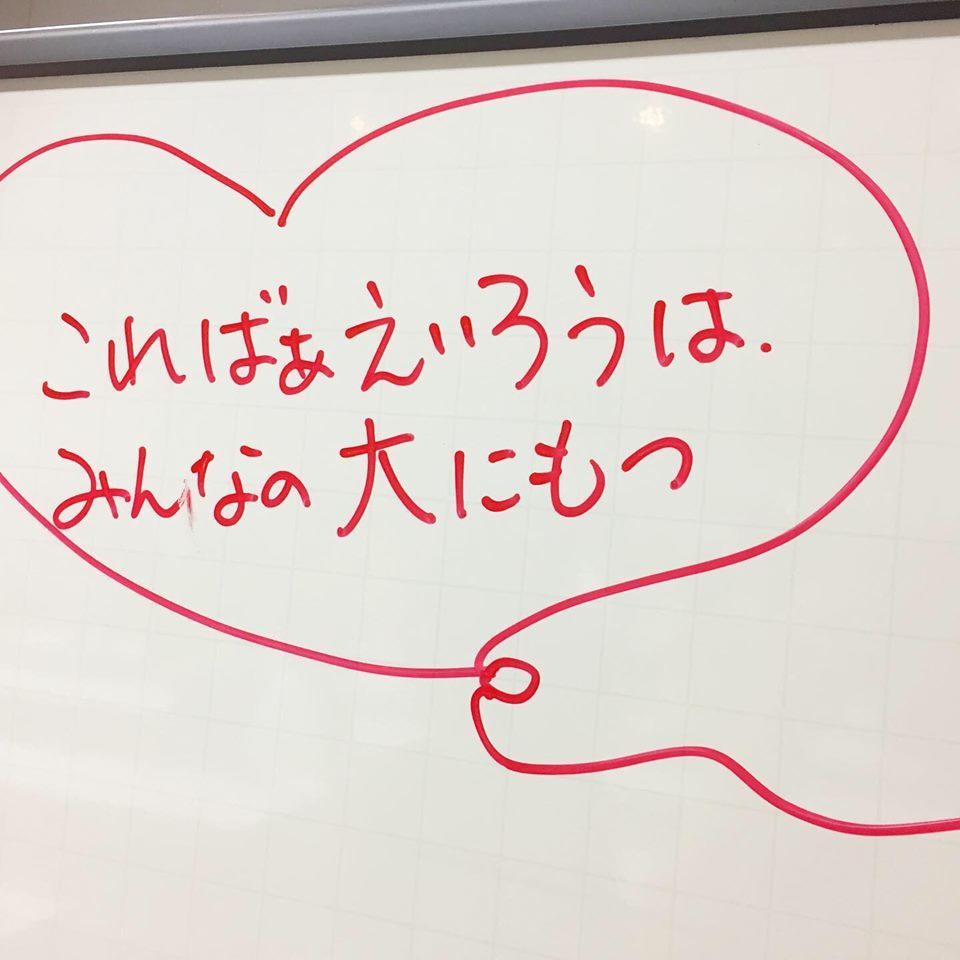 こればぁえいろうは.
みんなの大にもつ